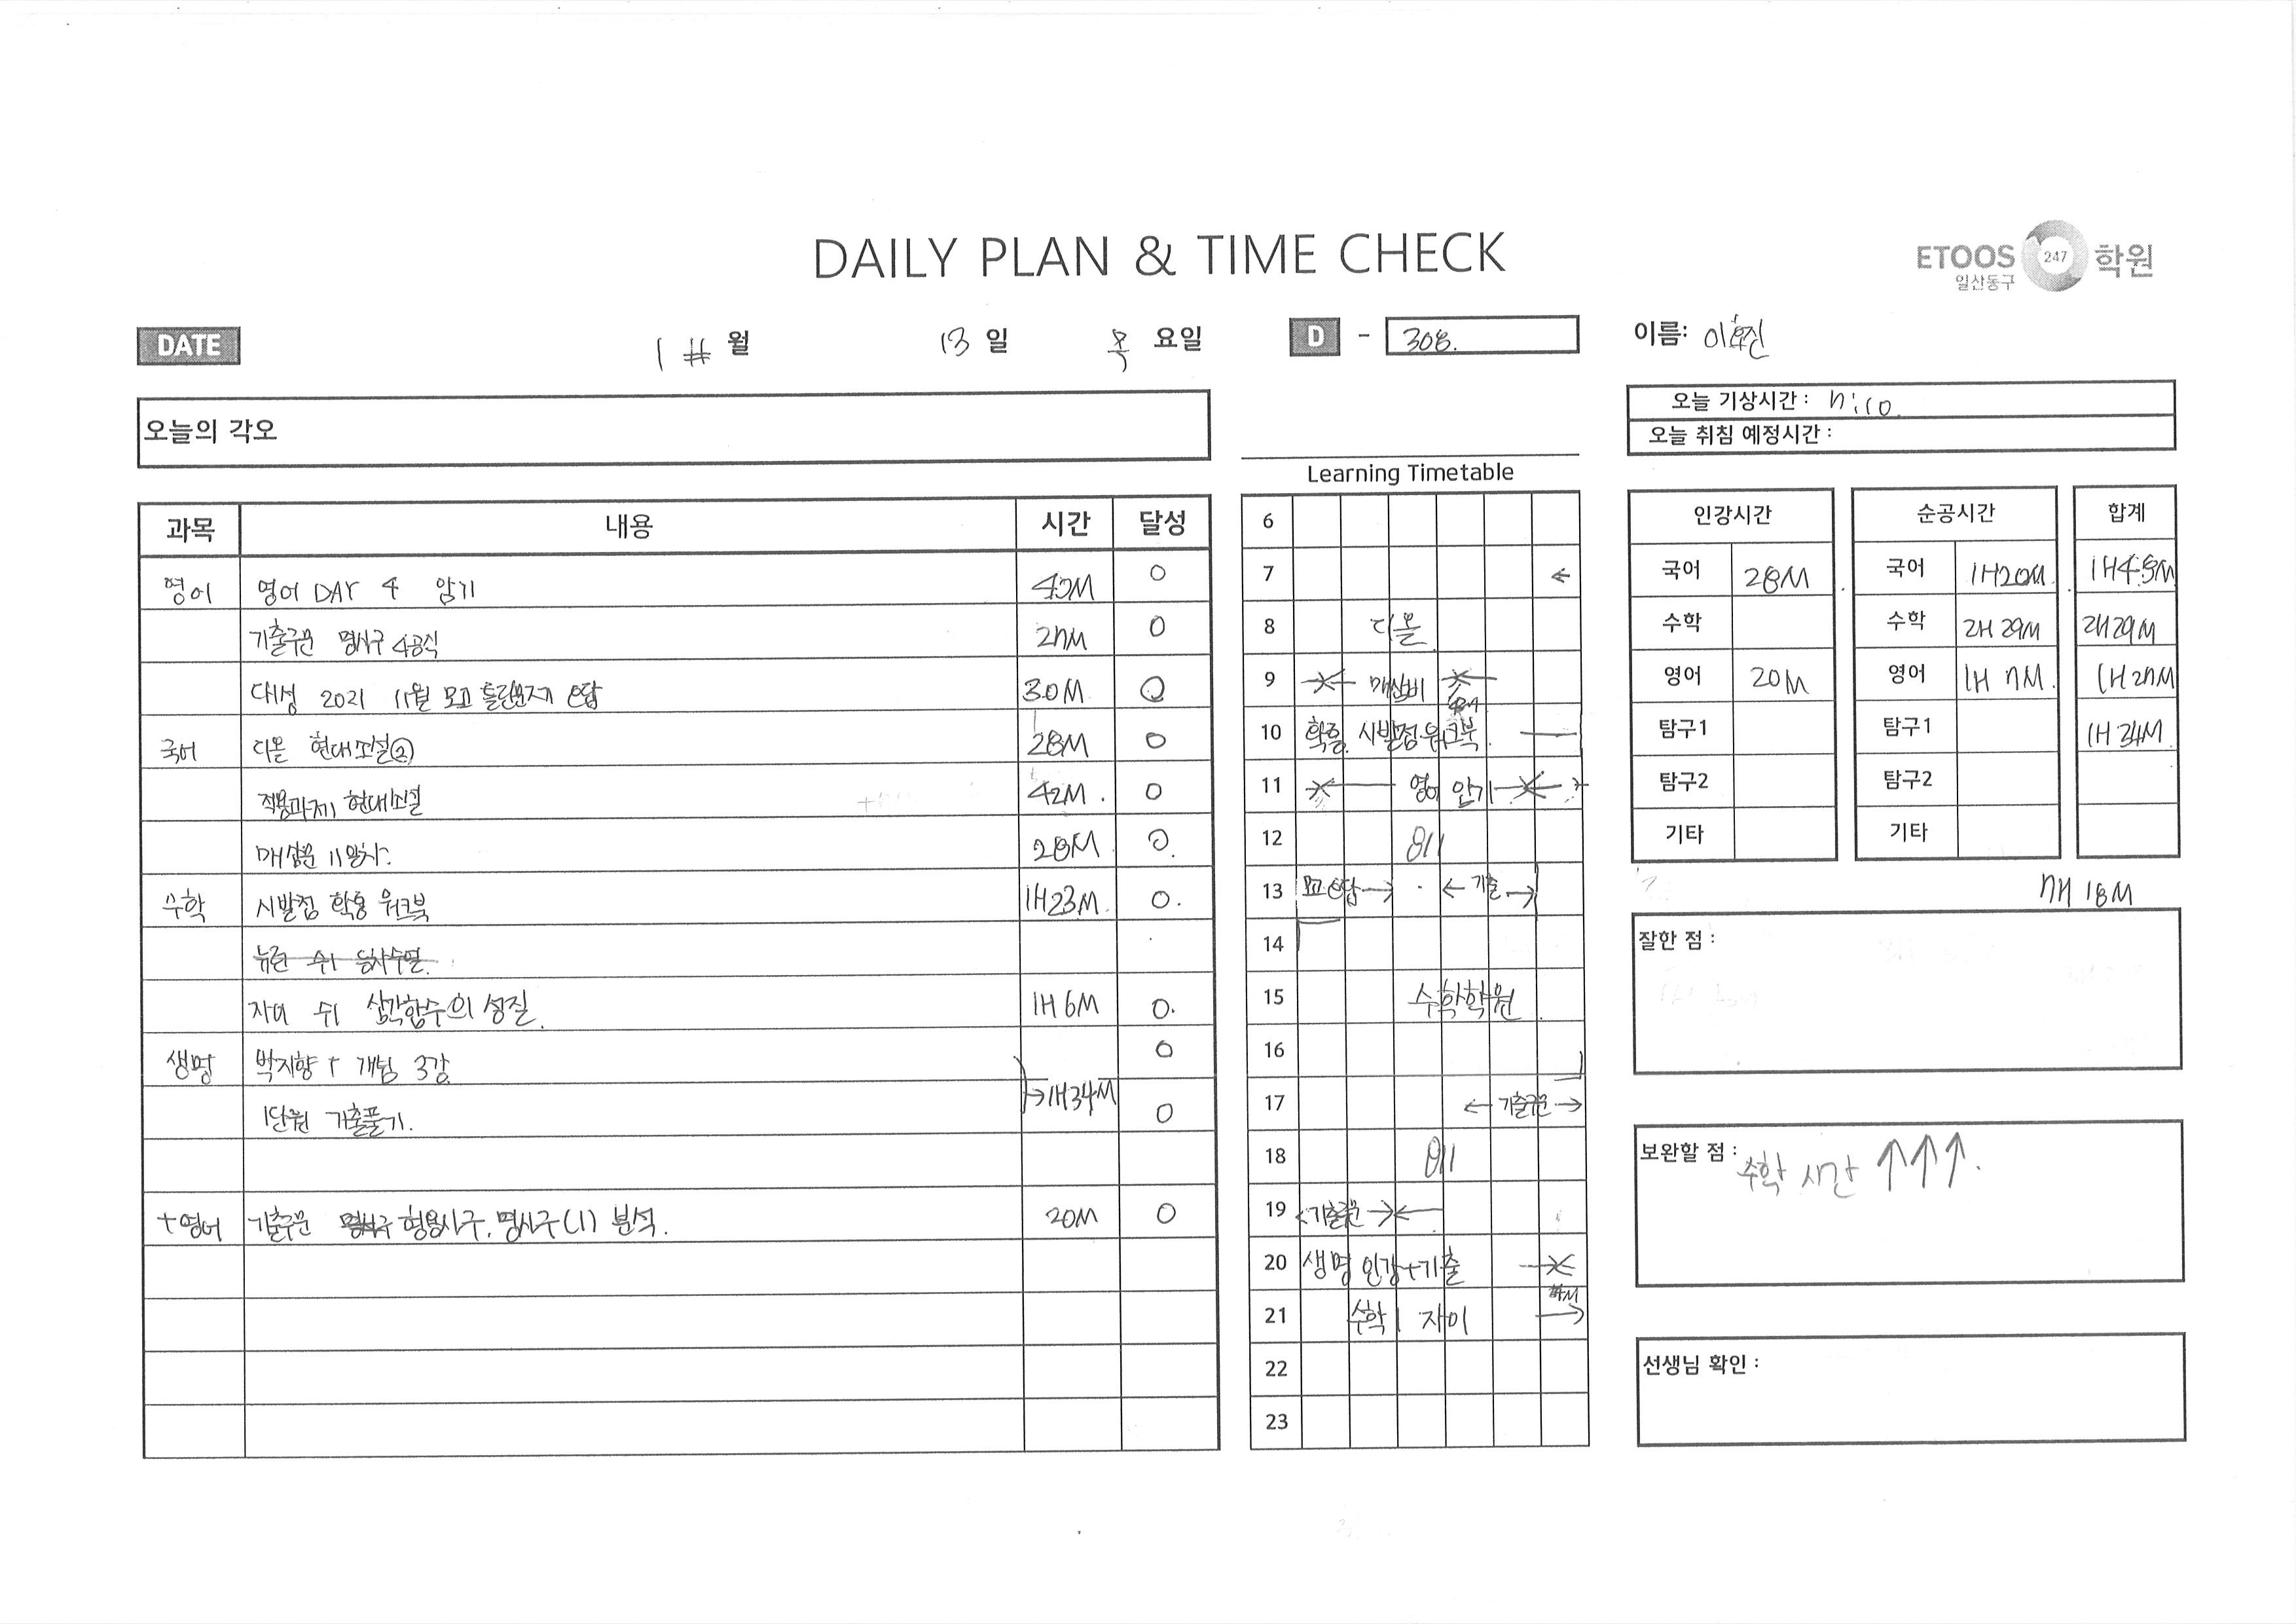 DAILY PLAN & TIME CHECK
ETOOS 247 학원
일산동구
DATE 1 월 13 일 목 요일 D - 308.
이름:
오늘의 각오
오늘 기상시간 : 7:10.
오늘 취침 예정시간 :
과목 내용 시간 달성
영어 영어 DAY 4 암기 43M O
기출구문 명사구 4공식 27M O
대성 2021 11월 모고 틀린문제 오답 30M O
국어 디올 현대소설② 28M O
적용과제 현대소설 42M . O
28M O.
수학 시발점 워크북 1H23M. O.
뉴런 수1 등차수열.
자이 수1 삼각함수의 성질. 1H 6M O.
생명 박지향 + 개념 3강 O
1단원 기출풀기. →1H34M O
+영어 기출구문 형용사구. 명사구(1) 분석. 20M O
Learning Timetable
6
7 ←
8 디올
9
10 시발점 워크북.
11 영어 암기
12 점심
13 모고 오답→ ← 기출 →
14
15 수학학원
16
17 ← 기출구문 →
18
19 <기출구문→←
20 생명 인강+기출
21 수학 자이 →
22
23
인강시간
국어 28M
수학
영어 20M
탐구1
탐구2
기타
순공시간
국어 1H20M
수학 2H 29M
영어 1H 7M.
탐구1
탐구2
기타
합계
1H48M
2H29M
1H27M
1H34M
7H 18M
잘한 점 :
보완할 점 : 수학 시간 ↑↑↑.
선생님 확인 :